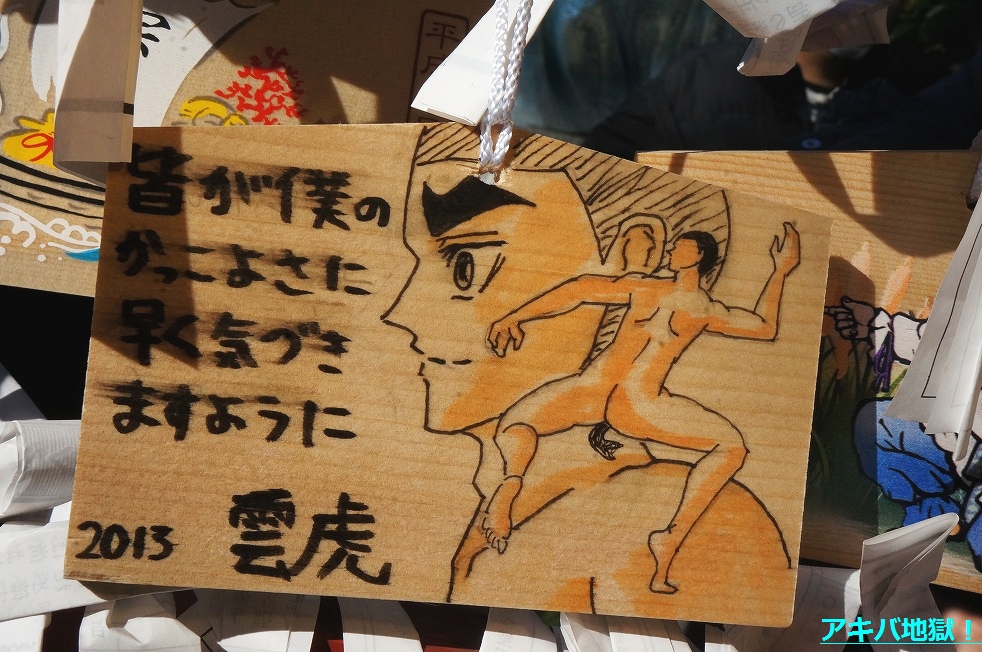 皆が僕の
かっこよさに
早く気づき
ますように
2013 雲虎
アキバ地獄！